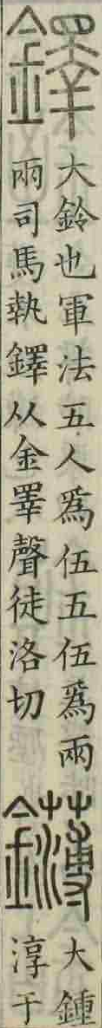 鐸
大鈴也軍法五人爲伍五伍爲兩
兩司馬執鐸从金睪聲徒洛切
鑮
大鍾
淳于